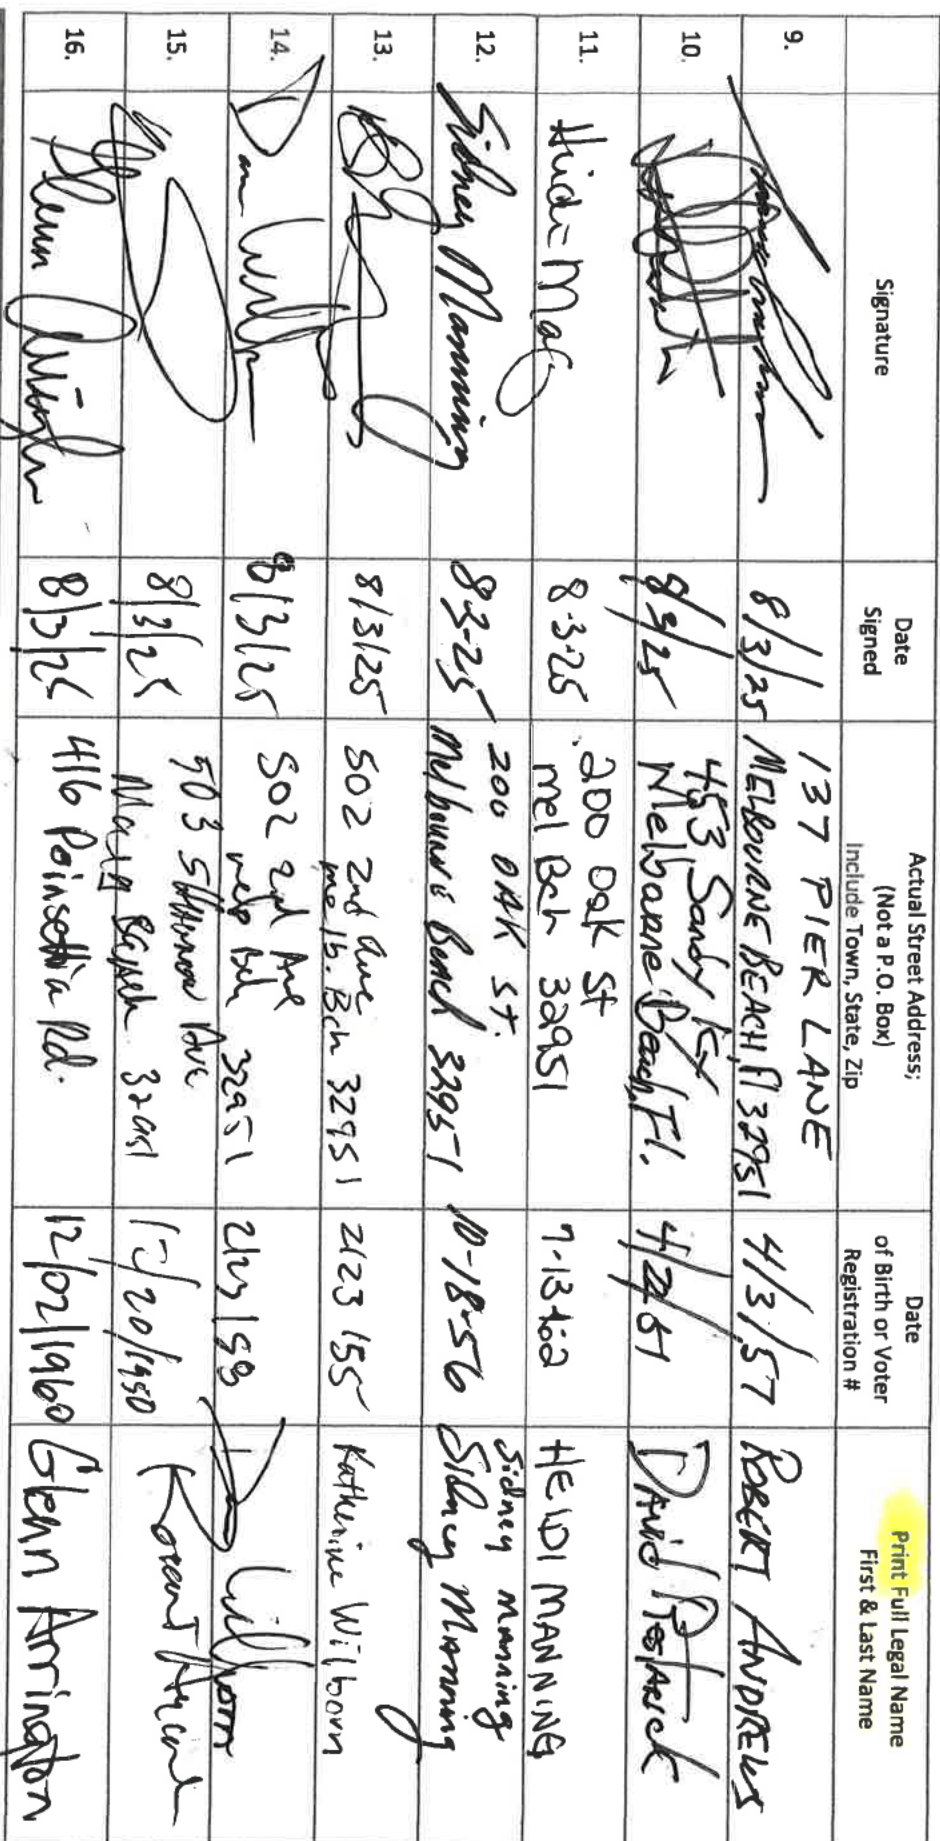 Signature
Date
Signed
Actual Street Address;
(Not a P.O. Box)
Include Town, State, Zip
Date
of Birth or Voter
Registration #
Print Full Legal Name
First & Last Name
9.
8/3/25
137 PIER LANE
MELBOURNE BEACH, Fl 32951
4/3/57
ROBERT ANDREWS
10.
8/3/25
453 Sandy Ky
Melbourne Beach, Fl.
David Restarick
11.
8-3-25
200 Oak St
Mel Bch 32951
7-13-62
HEIDI MANNING
12.
Sidney Manning
8-3-25
200 OAK St.
Melbourne Beach 32951
10-18-56
Sidney Manning
Sidney Manning
13.
8/3/25
502 2nd Ave
melb. Bch 32951
2/23/55
Katherine Wilborn
14.
8/3/25
502 2nd Ave
melb Bch 32951
Wilborn
15.
8/3/25
503 Ave
32951
/20/1950
16.
Glenn
8/3/25
416 Poinsettia Rd.
12/02/1960
Glenn Arrington